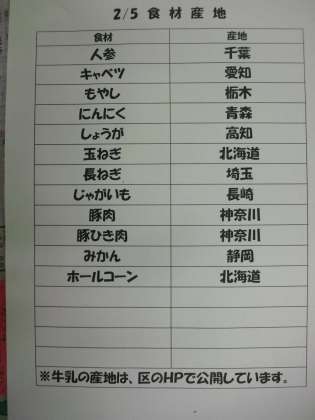 2/5 食材産地
食材 産地
人参 千葉
キャベツ 愛知
もやし 栃木
にんにく 青森
しょうが 高知
玉ねぎ 北海道
長ねぎ 埼玉
じゃがいも 長崎
豚肉 神奈川
豚ひき肉 神奈川
みかん 静岡
ホールコーン 北海道
※牛乳の産地は、区のHPで公開しています。